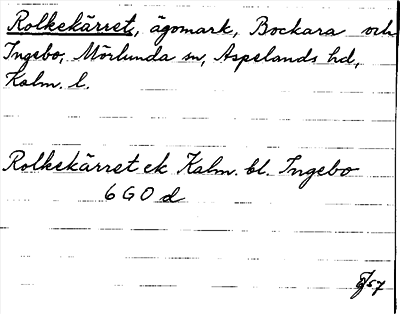 Rolkekärret, ägomark, Bockara och
Ingebo, Mörlunda sn, Aspelands hd,
Kalm. l.
Rolkekärret ek Kalm. bl. Ingebo
6 G 0 d